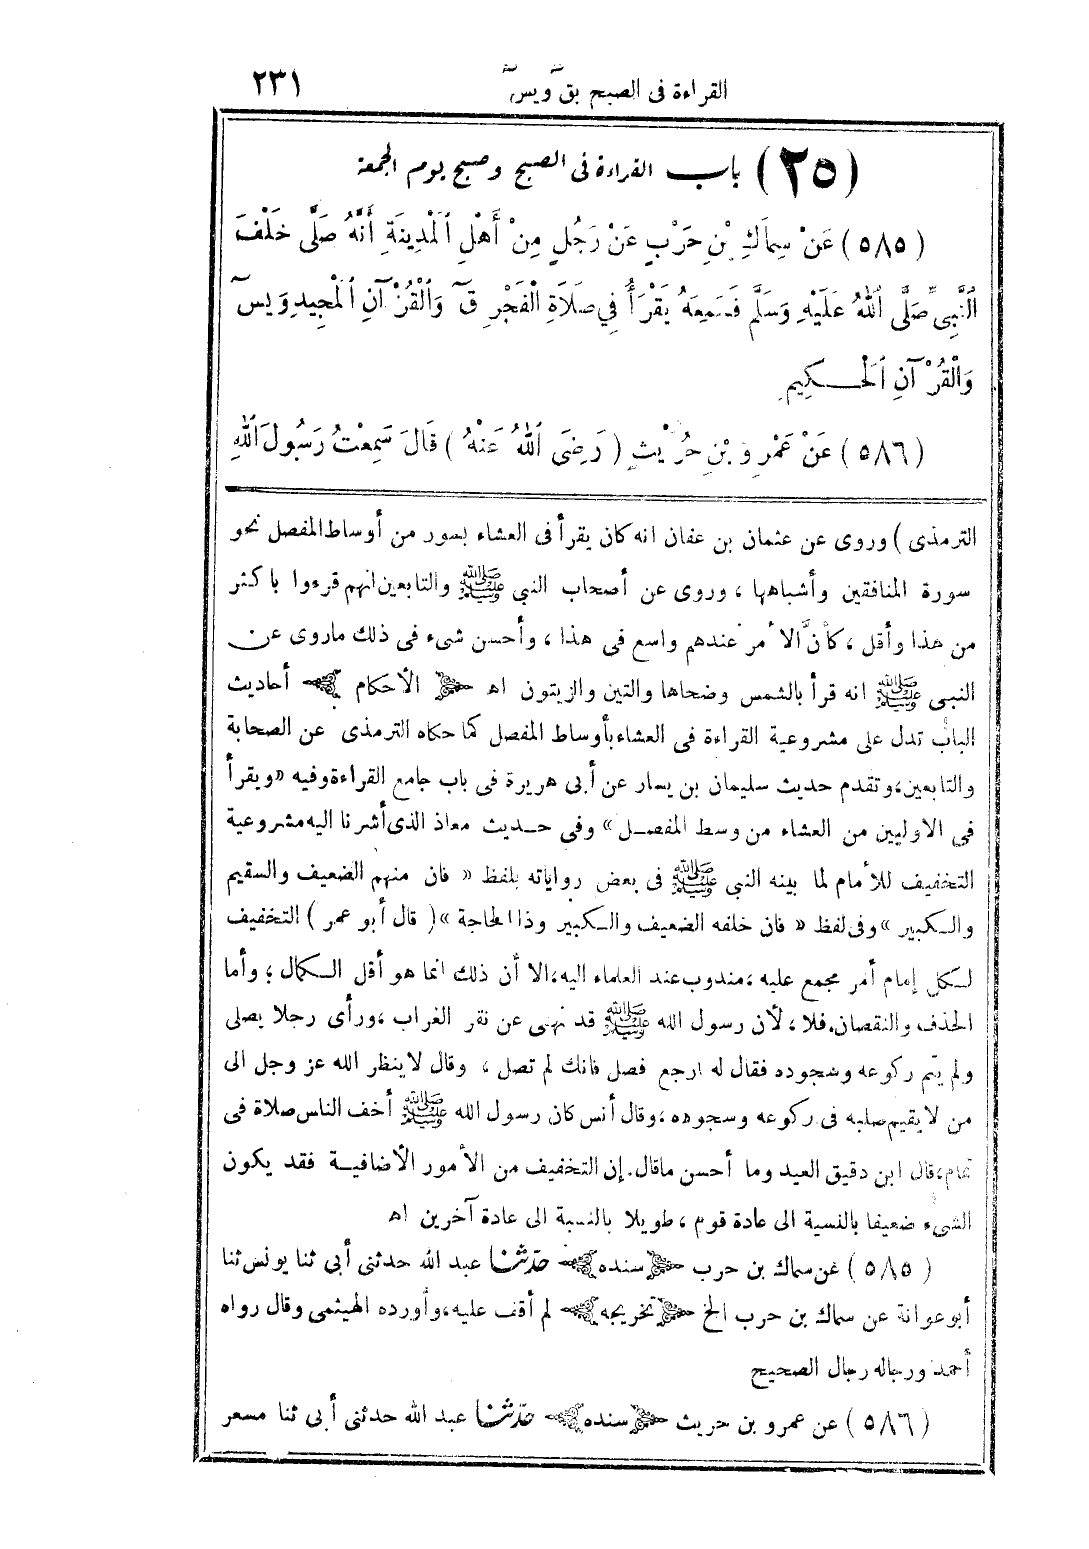 القراءة فى الصبح بق ويس
٢٣١
(٢٥) باب القراءة فى الصبح وصبح يوم الجمعة
(٥٨٥) عَنْ سِمَاكِ بْنِ حَرْبٍ عَنْ رَجُلٍ مِنْ أَهْلِ ٱلْمَدِينَةِ أَنَّهُ صَلَّى خَلْفَ
ٱلنَّبِىِّ صَلَّى ٱللهُ عَلَيْهِ وَسَلَّم فَسَمِعَهُ يَقْرَأُ فِي صَلَاةِ ٱلْفَجْرِ قٓ وَٱلْقُرْآنِ ٱلْمَجِيدِ وَيسٓ
وَٱلْقُرْآنِ ٱلْحَـكِيمِ
(٥٨٦) عَنْ عَمْرِو بْنِ حُرَيْثٍ (رَضِىَ ٱللهُ عَنْهُ) قَالَ سَمِعْتُ رَسُولَ ٱللهِ
الترمذى) وروى عن عثمان بن عفان انه كان يقرأ فى العشاء بسور من أوساط المفصل نحو
سورة المنافقين وأشباهها، وروى عن أصحاب النبي ﷺ والتابعين انهم قرءوا باكثر
من هذا وأقل، كأنَّ الأمر عندهم واسع فى هذا، وأحسن شىء فى ذلك ماروى عن
النبى ﷺ انه قرأ بالشمس وضحاها والتين والزيتون اهـ ﴿الأحكام﴾ أحاديث
الباب تدل على مشروعية القراءة فى العشاء بأوساط المفصل كما حكاه الترمذى عن الصحابة
والتابعين، وتقدم حديث سليمان بن يسار عن أبى هريرة فى باب جامع القراءة وفيه «ويقرأ
فى الاوليين من العشاء من وسط المفصـل» وفى حـديث معاذ الذى أشرنا اليه مشروعية
التخفيف للأمام لما بينه النبي ﷺ فى بعض رواياته بلفظ «فان منهم الضعيف والسقيم
والـكبير» وفى لفظ «فان خلفه الضعيف والـكبير وذا الحاجة» (قال أبو عمر) التخفيف
لـكل إمام أمر مجمع عليه، مندوب عند العلماء اليه، الا أن ذلك انما هو أقل الـكمال؛ وأما
الحذف والنقصان. فلا، لأن رسول الله ﷺ قد نهى عن نقر الغراب، ورأى رجلا يصلى
ولم يتم ركوعه وسجوده فقال له ارجع فصل فانك لم تصل، وقال لا ينظر الله عز وجل الى
من لا يقيم صلبه فى ركوعه وسجوده، وقال أنس كان رسول الله ﷺ أخف الناس صلاة فى
تمام، قال ابن دقيق العيد وما أحسن ماقال. إن التخفيف من الأمور الأضافيـة فقد يكون
الشىء ضعيفا بالنسبة الى عادة قوم، طويلا بالنسبة الى عادة آخرين اهـ
(٥٨٥) عن سماك بن حرب ﴿سنده﴾ حدّثنا عبد الله حدثنى أبى ثنا يونس ثنا
أبو عوانة عن سماك بن حرب الخ ﴿تخريجه﴾ لم أقف عليه، وأورده الهيثمى وقال رواه
أحمد ورجاله رجال الصحيح
(٥٨٦) عن عمرو بن حريث ﴿سنده﴾ حدّثنا عبد الله حدثنى أبى ثنا مسعر